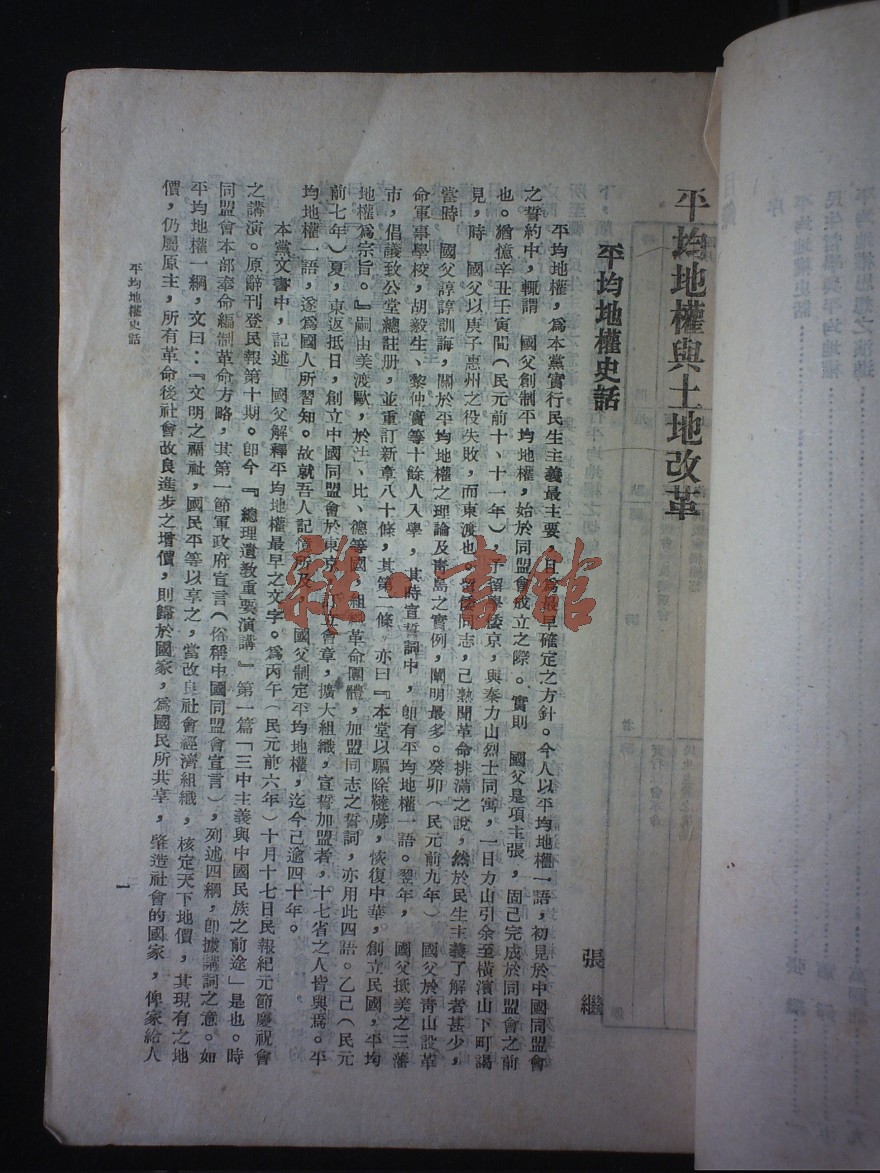 平均地權與土地改革
平均地權史話
張繼
平均地權，為本黨實行民生主義最主要，且為最早確定之方針。今人以平均地權一語，初見於中國同盟會
之誓約中，輒謂　國父創制平均地權，始於同盟會成立之際。實則　國父是項主張，固已完成於同盟會之前
也。猶憶辛丑壬寅間（民元前十、十一年），予留學倭京，與秦力山烈士同寓，一日力山引余至橫濱山下町謁
見，時　國父以庚子惠州之役失敗，而東渡也。留倭同志，己熟聞革命排滿之說，然於民生主義了解者甚少，
當時　國父諄諄訓誨，關於平均地權之理論及青島之實例，闡明最多。癸卯（民元前九年）　國父於青山設革
命軍事學校，胡毅生、黎仲實等十餘人入學，其時宣誓詞中，卽有平均地權一語。翌年，　國父抵美之三藩
市，倡議致公堂總註册，並重訂新章八十條，其第二條，亦曰『本堂以驅除韃虜，恢復中華，創立民國，平均
地權為宗旨。』嗣由美渡歐，於法、比、德等國，組織革命團體，加盟同志之誓詞，亦用此四語。乙己（民元
前七年）夏，東返抵日，創立中國同盟會於東京，訂立會章，擴大組織，宣誓加盟者，十七省之人皆與焉。平
均地權一語，遂為國人所習知。故就吾人記憶所及，　國父制定平均地權，迄今已逾四十年。
本黨文書中，記述　國父解釋平均地權最早之文字。為丙午（民元前六年）十月十七日民報紀元節慶祝會
之講演。原辭刊登民報第十期。卽今『總理遺教重要演講』第一篇「三中主義與中國民族之前途」是也。時
同盟會本部奉命編制革命方略，其第一節軍政府宣言（俗稱中國同盟會宣言），列述四綱，卽據講詞之意。如
平均地權一綱，文曰：『文明之福祉，國民平等以享之，當改良社會經濟組織，核定天下地價，其現有之地
價，仍屬原主，所有革命後社會改良進步之增價，則歸於國家，為國民所共享，肇造社會的國家，俾家給人
平均地權史話
一
雜·書館